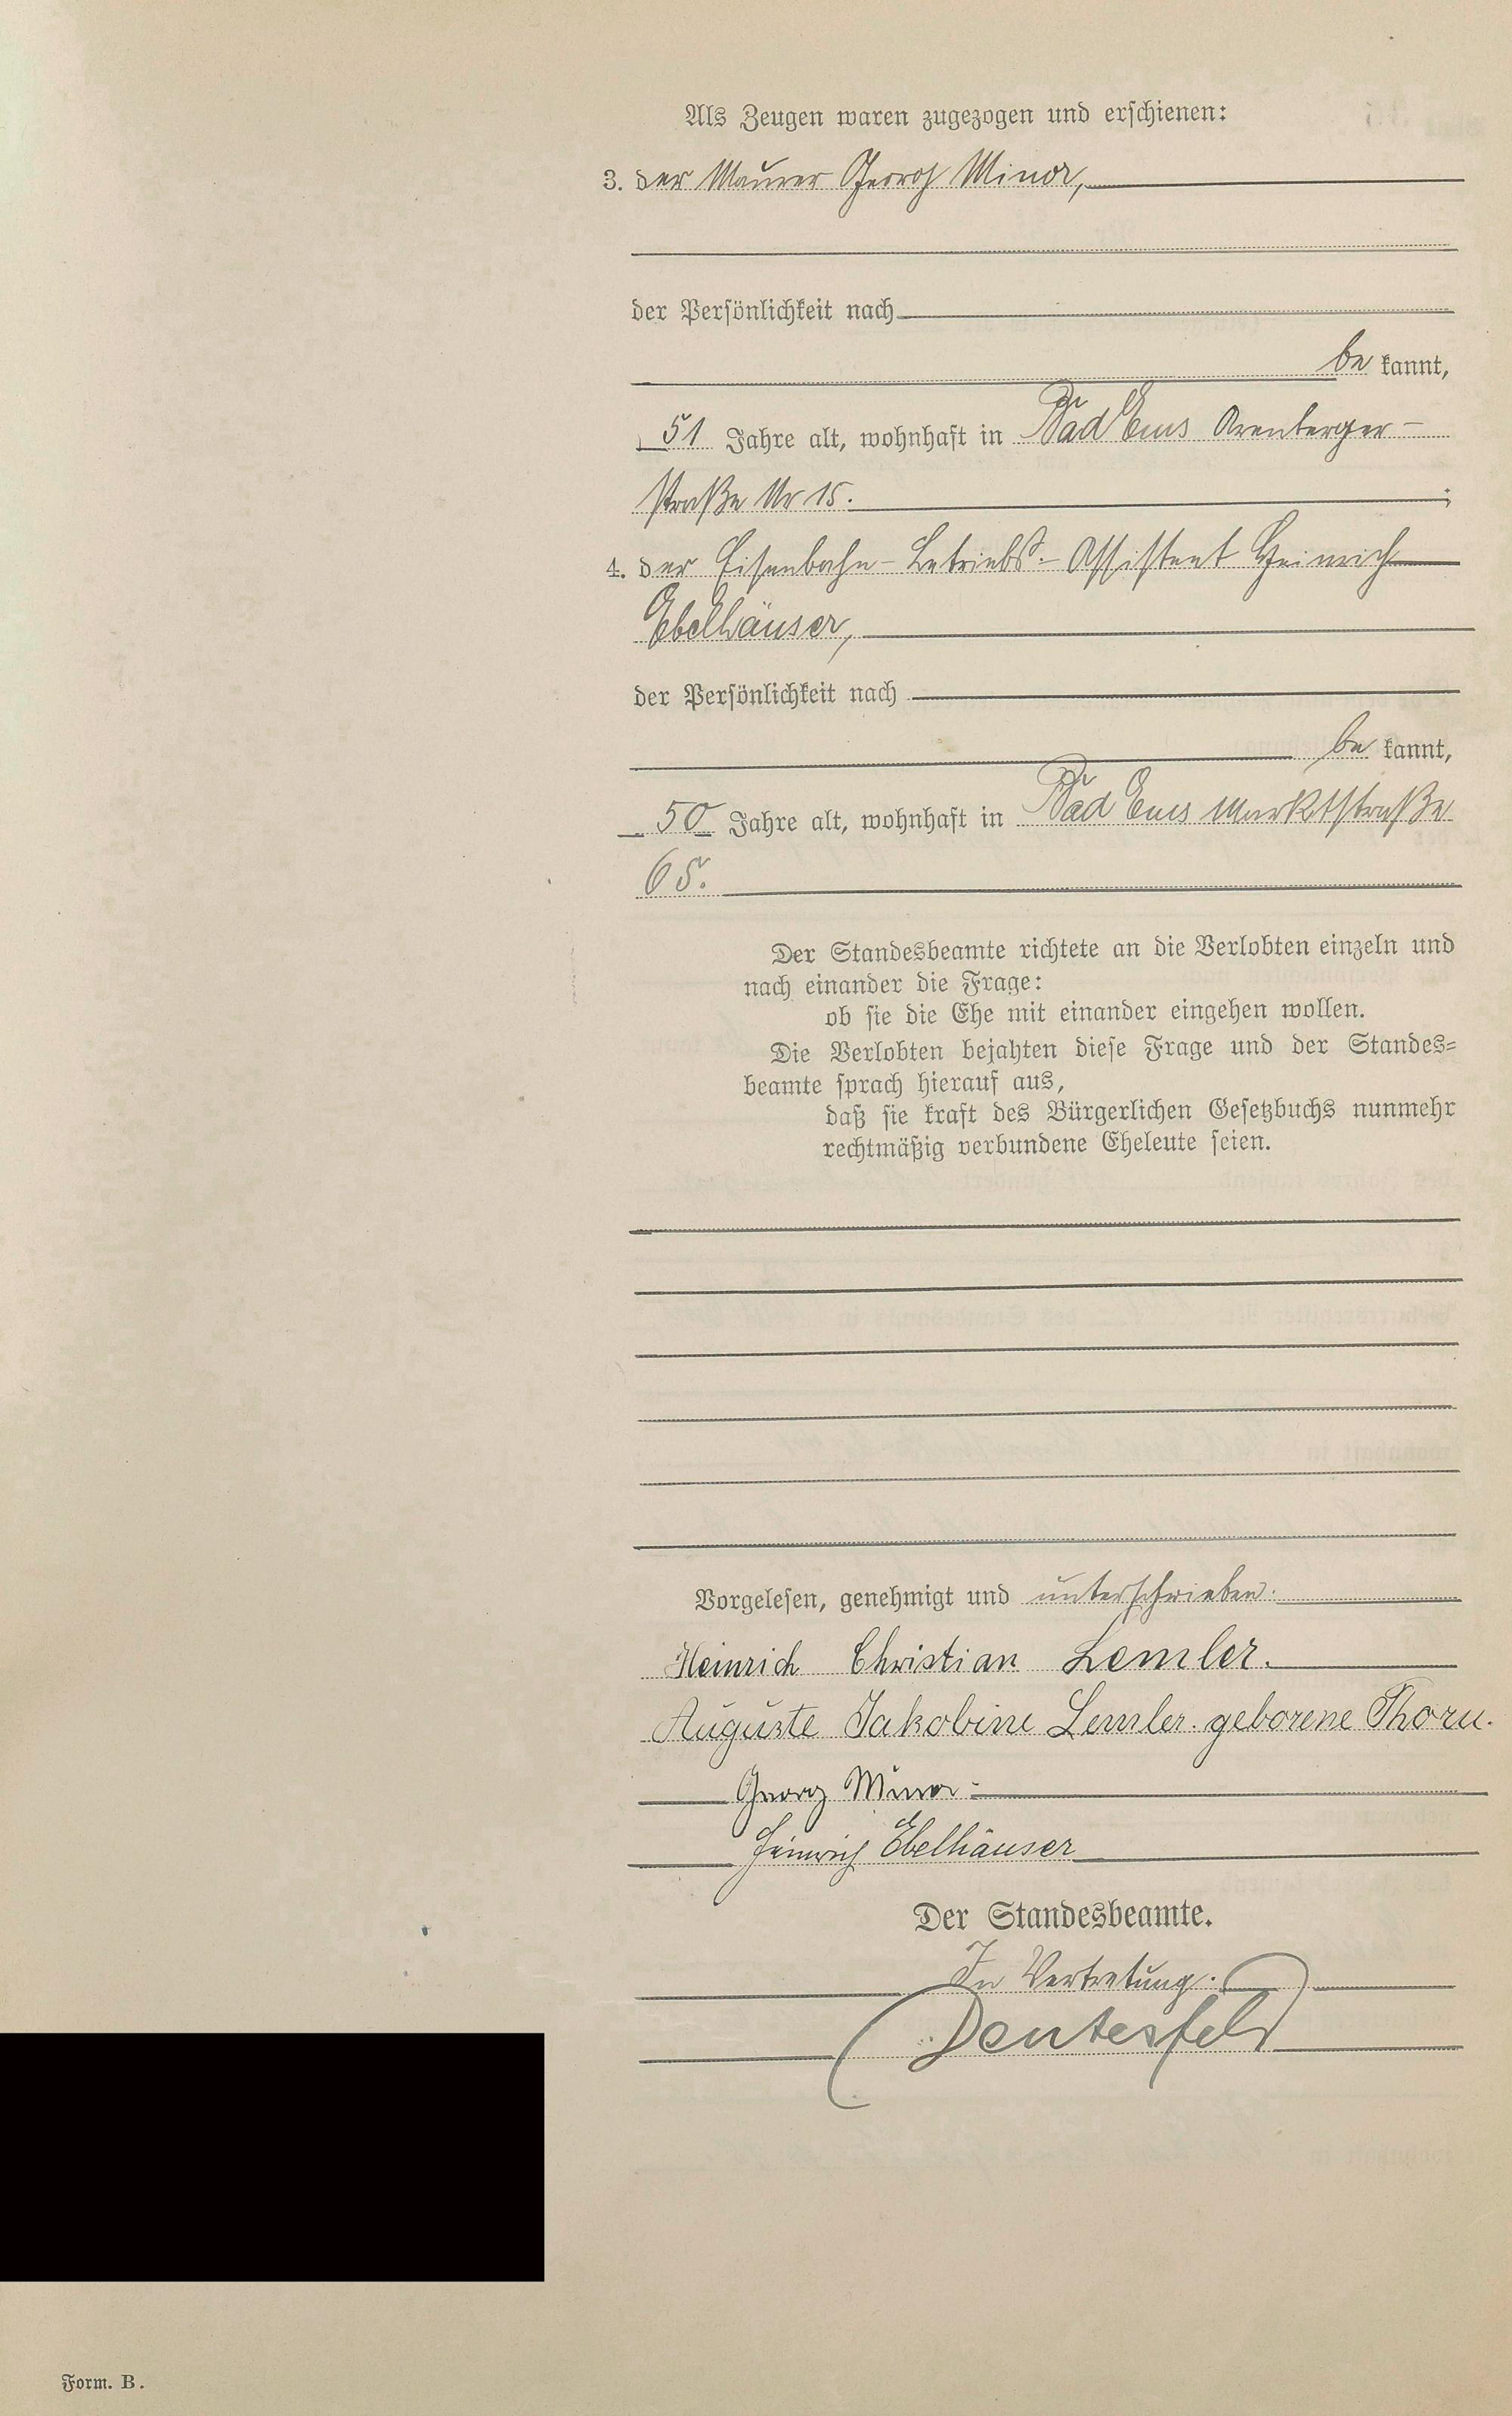 Als Zeugen waren zugezogen und erschienen:
3. der Maurer Georg Minor,
der Persönlichkeit nach
be kannt,
51 Jahre alt, wohnhaft in Bad Ems Arenberger-
straße Nr 15. ;
4. der Eisenbahn-Betriebs.-Assistent Heinrich
Ebelhäuser,
der Persönlichkeit nach
be kannt,
50 Jahre alt, wohnhaft in Bad Ems Marktstraße
65.
Der Standesbeamte richtete an die Verlobten einzeln und
nach einander die Frage:
ob sie die Ehe mit einander eingehen wollen.
Die Verlobten bejahten diese Frage und der Standes=
beamte sprach hierauf aus,
daß sie kraft des Bürgerlichen Gesetzbuchs nunmehr
rechtmäßig verbundene Eheleute seien.
Vorgelesen, genehmigt und unterschrieben:
Heinrich Christian Lemler.
Auguste Jakobine Lemler. geborene Thorn.
Georg Minor.
Heinrich Ebelhäuser
Der Standesbeamte.
In Vertretung.
Deutesfeld
Form. B.